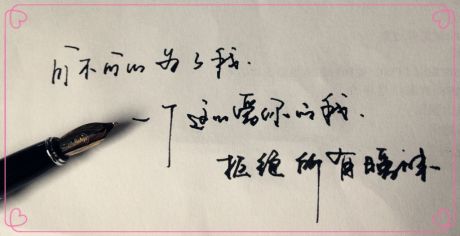 可不可以为了我.
一个这么需要你的我.
拒绝所有暧昧